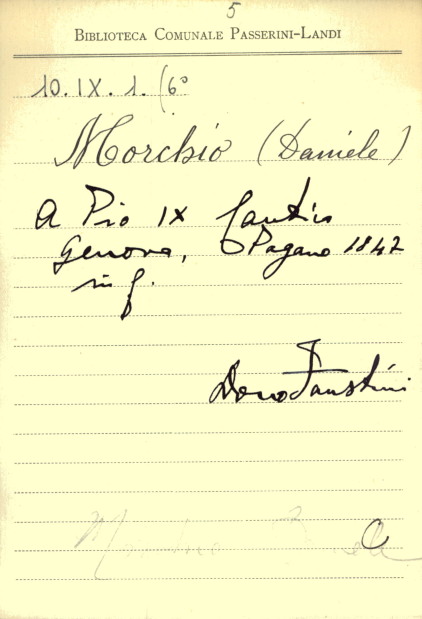 5
BIBLIOTECA COMUNALE PASSERINI-LANDI
10. IX. 1. (6°
Morchio (Daniele)
A Pio IX Cantico
Genova, Pagano 1847
in f.
Dono Faustini
C